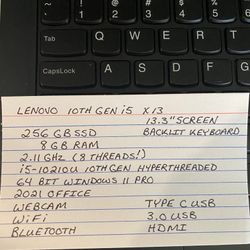 Tab
Q
W
E
R
T
CapsLock
A
S
D
F
G
LENOVO 10TH GEN i5 X13
13.3" SCREEN
256 GB SSD BACKLIT KEYBOARD
8 GB RAM
2.11 GHz (8 THREADS!)
i5-10210U 10TH GEN HYPERTHREADED
64 BIT WINDOWS 11 PRO
2021 OFFICE
WEBCAM TYPE C USB
WiFi 3.0 USB
BLUETOOTH HDMI